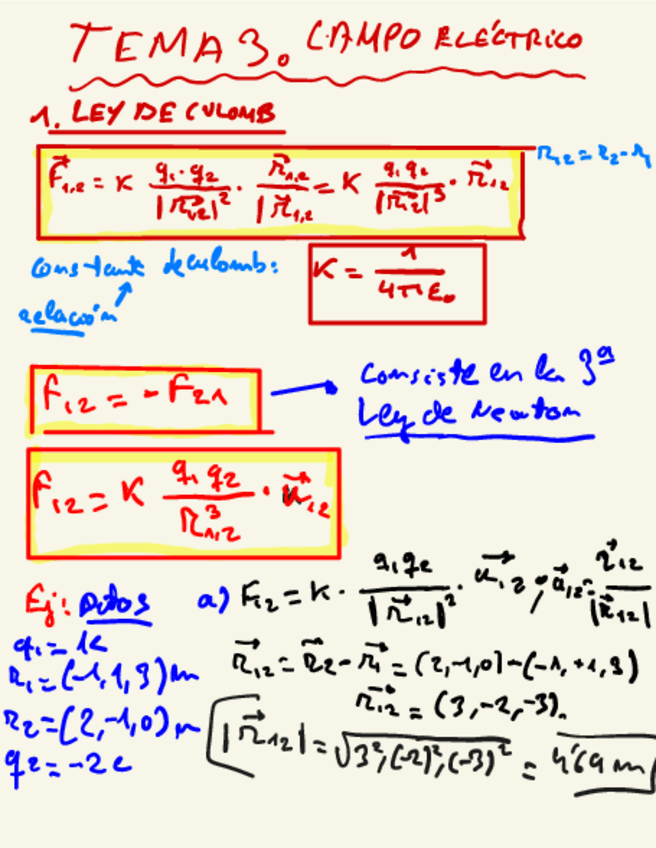 TEMA 3. CAMPO ELÉCTRICO
1. LEY DE CULOMB
F⃗1,2 = K q1·q2/|r⃗12|² · r⃗1,2/|r⃗1,2| = K q1 q2/|r⃗12|³ · r⃗12
r12 = r2 - r1
Constante de culomb:
relación
K = 1/4πε₀
F12 = - F21
Consiste en la 3ª
Ley de Newton
F12 = K q1 q2/r1,2³ · u⃗12
Ej: Datos
q1 = 1c
r1 = (-1, 1, 3) m
r2 = (2, -1, 0) m
q2 = -2c
a) F12 = K · q1 q2/|r⃗12|² · u⃗12 ; u⃗12 = r⃗12/|r⃗12|
r⃗12 = r⃗2 - r⃗1 = (2, -1, 0) - (-1, +1, 3)
r⃗12 = (3, -2, -3).
|r⃗12| = √3², (-2)², (-3)² = 4'69 m